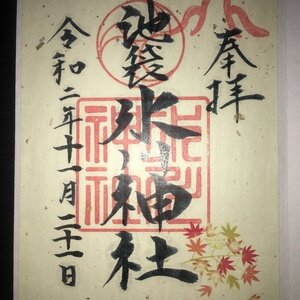 奉拝
池袋
水神社
令和二年十一月二十一日